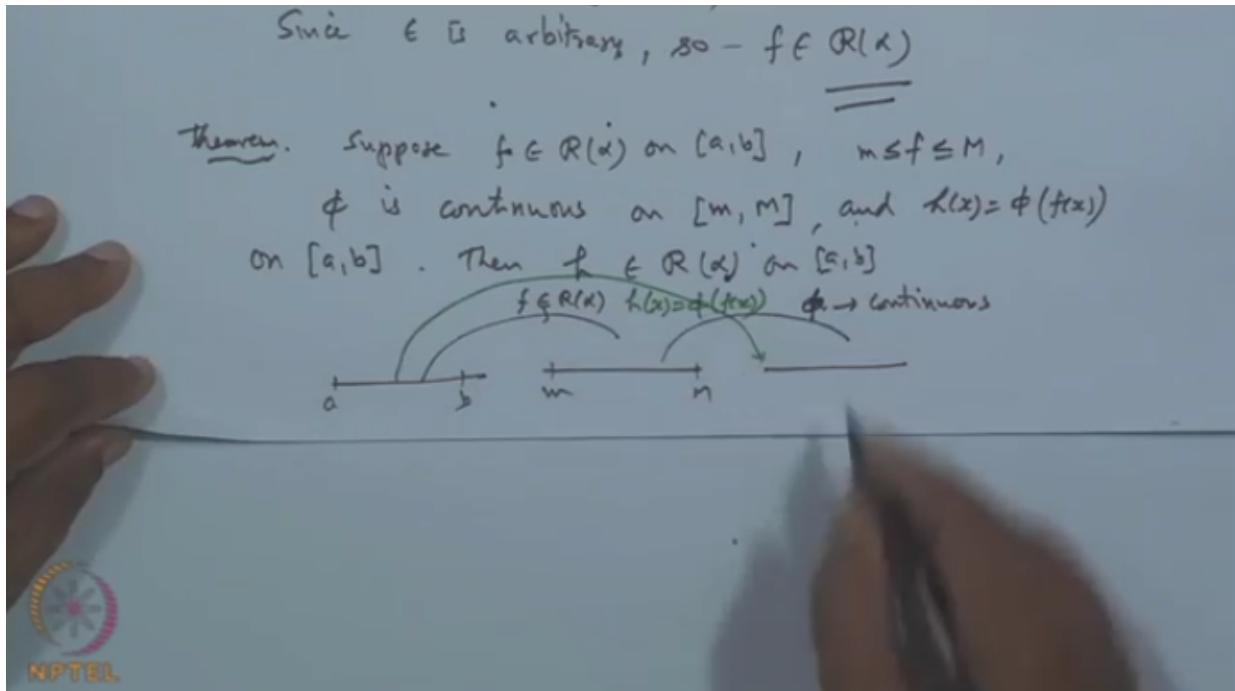 Since ϵ is arbitrary, so - f ∈ R(α)
Theorem. Suppose f ∈ R(α) on [a,b], m ≤ f ≤ M,
ϕ is continuous on [m, M], and h(x) = ϕ(f(x))
on [a,b]. Then h ∈ R(α) on [a,b]
f ∈ R(α) h(x)=ϕ(f(x)) ϕ → continuous
a b m M
NPTEL